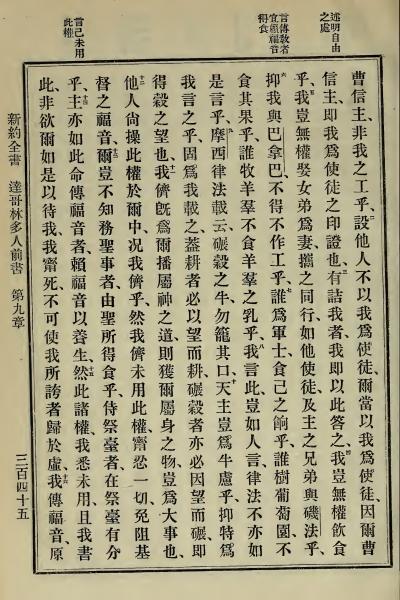 述明自由
之處
言傳敎者
宜賴福音
得食
言己未用
此權
曹信主、非我之工乎、設他人不以我爲使徒、爾當以我爲使徒、因爾曹
信主、卽我爲使徒之印證也、三有詰我者、我卽以此答之、四我豈無權飲食
乎、五我豈無權娶女弟爲妻、攜之同行、如他使徒、及主之兄弟與磯法乎、
六抑我與巴拿巴、不得不作工乎、七誰爲軍士食己之餉乎、誰樹葡萄園不
食其果乎、誰牧羊羣不食羊羣之乳乎、八我言此、豈如人言、律法不亦如
是言乎、九摩西律法載云、碾穀之牛、勿籠其口、天主豈爲牛慮乎、十抑特爲
我言之乎、固爲我載之、蓋耕者必以望而耕、碾穀者亦必因望而碾、卽
得穀之望也、十一我儕旣爲爾播屬神之道、則獲爾屬身之物、豈爲大事也、
十二他人尙操此權於爾中、况我儕乎、然我儕未用此權、甯忍一切、免阻基
督之福音、十三爾豈不知務聖事者、由聖所得食乎、侍祭臺者、在祭臺有分
乎、十四主亦如此命傳福音者、賴福音以養生、十五然此諸權、我悉未用、且我書
此、非欲爾如是以待我、我甯死、不可使我所誇者歸於虛、十六我傳福音、原
新約全書 達哥林多人前書 第九章 三百四十五